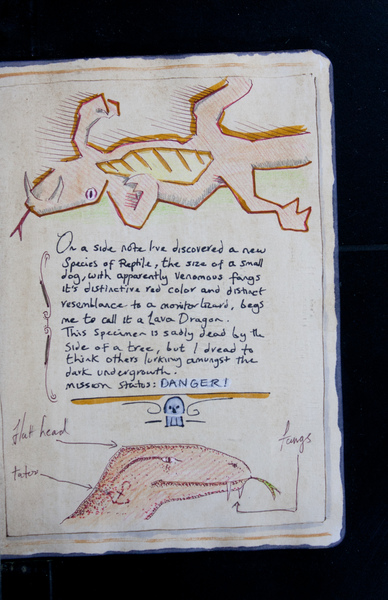 On a side note I've discovered a new
Species of Reptile, the size of a small
dog, with apparently venomous fangs
it's distinctive red color and distinct
resemblance to a monitor lizard, begs
me to call it a Lava Dragon.
This Specimen is sadly dead by the
side of a tree, but I dread to
think others lurking amungst the
dark undergrowth.
mission status: DANGER!
flat head
fangs
tator